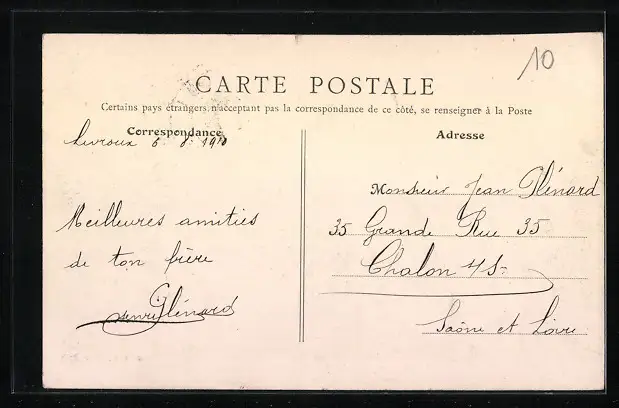 10
CARTE POSTALE
Certains pays étrangers n'acceptant pas la correspondance de ce côté, se renseigner à la Poste
Correspondance
Levroux 6 8 1910
Meilleures amitiés
de ton frère
Henri Glénard
Adresse
Monsieur Jean Glénard
35 Grande Rue 35
Chalon s/S-
Saône et Loire